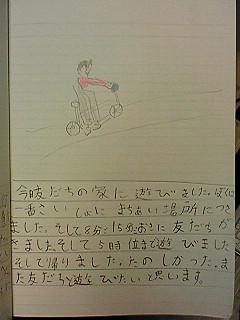 今友だちの家に遊びました。ぼくは
一番さいしょにまちあい場所につき
ました。そして8分に15分おきに友だちが
きましたそして5時位まで遊びました
そして帰りました。たのしかった。ま
た友だちと遊びたいと思います。